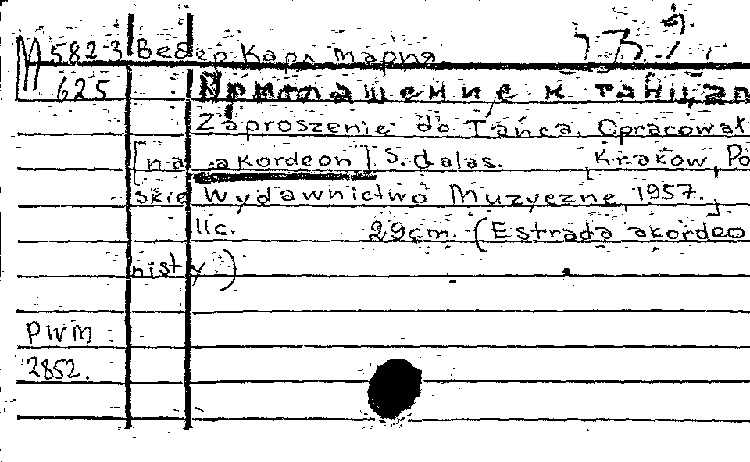 М 582-3 Вебер Карл Мария
625 Приглашение к танцам
Zaproszenie do Tańca. Opracował
[na akordeon] S. Galas. Kraków, Po
skie Wydawnictwo Muzyczne, 1957.
11c. 29cm. (Estrada akordeo
nisty)
PWM
2852.